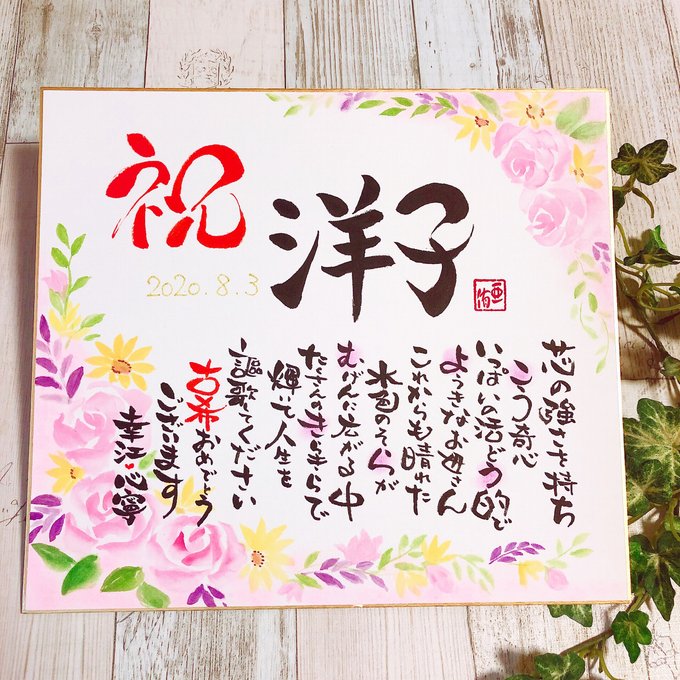 祝
洋子
2020.8.3
芯の強さを持ち
こう奇心
いっぱいの活どう的で
ようきなお母さん
これからも晴れた
水色のそらが
むげんに広がる中
たくさんきらきらで
輝いて人生を
謳歌してください
古希おめでとう
ございます
幸江・心寧